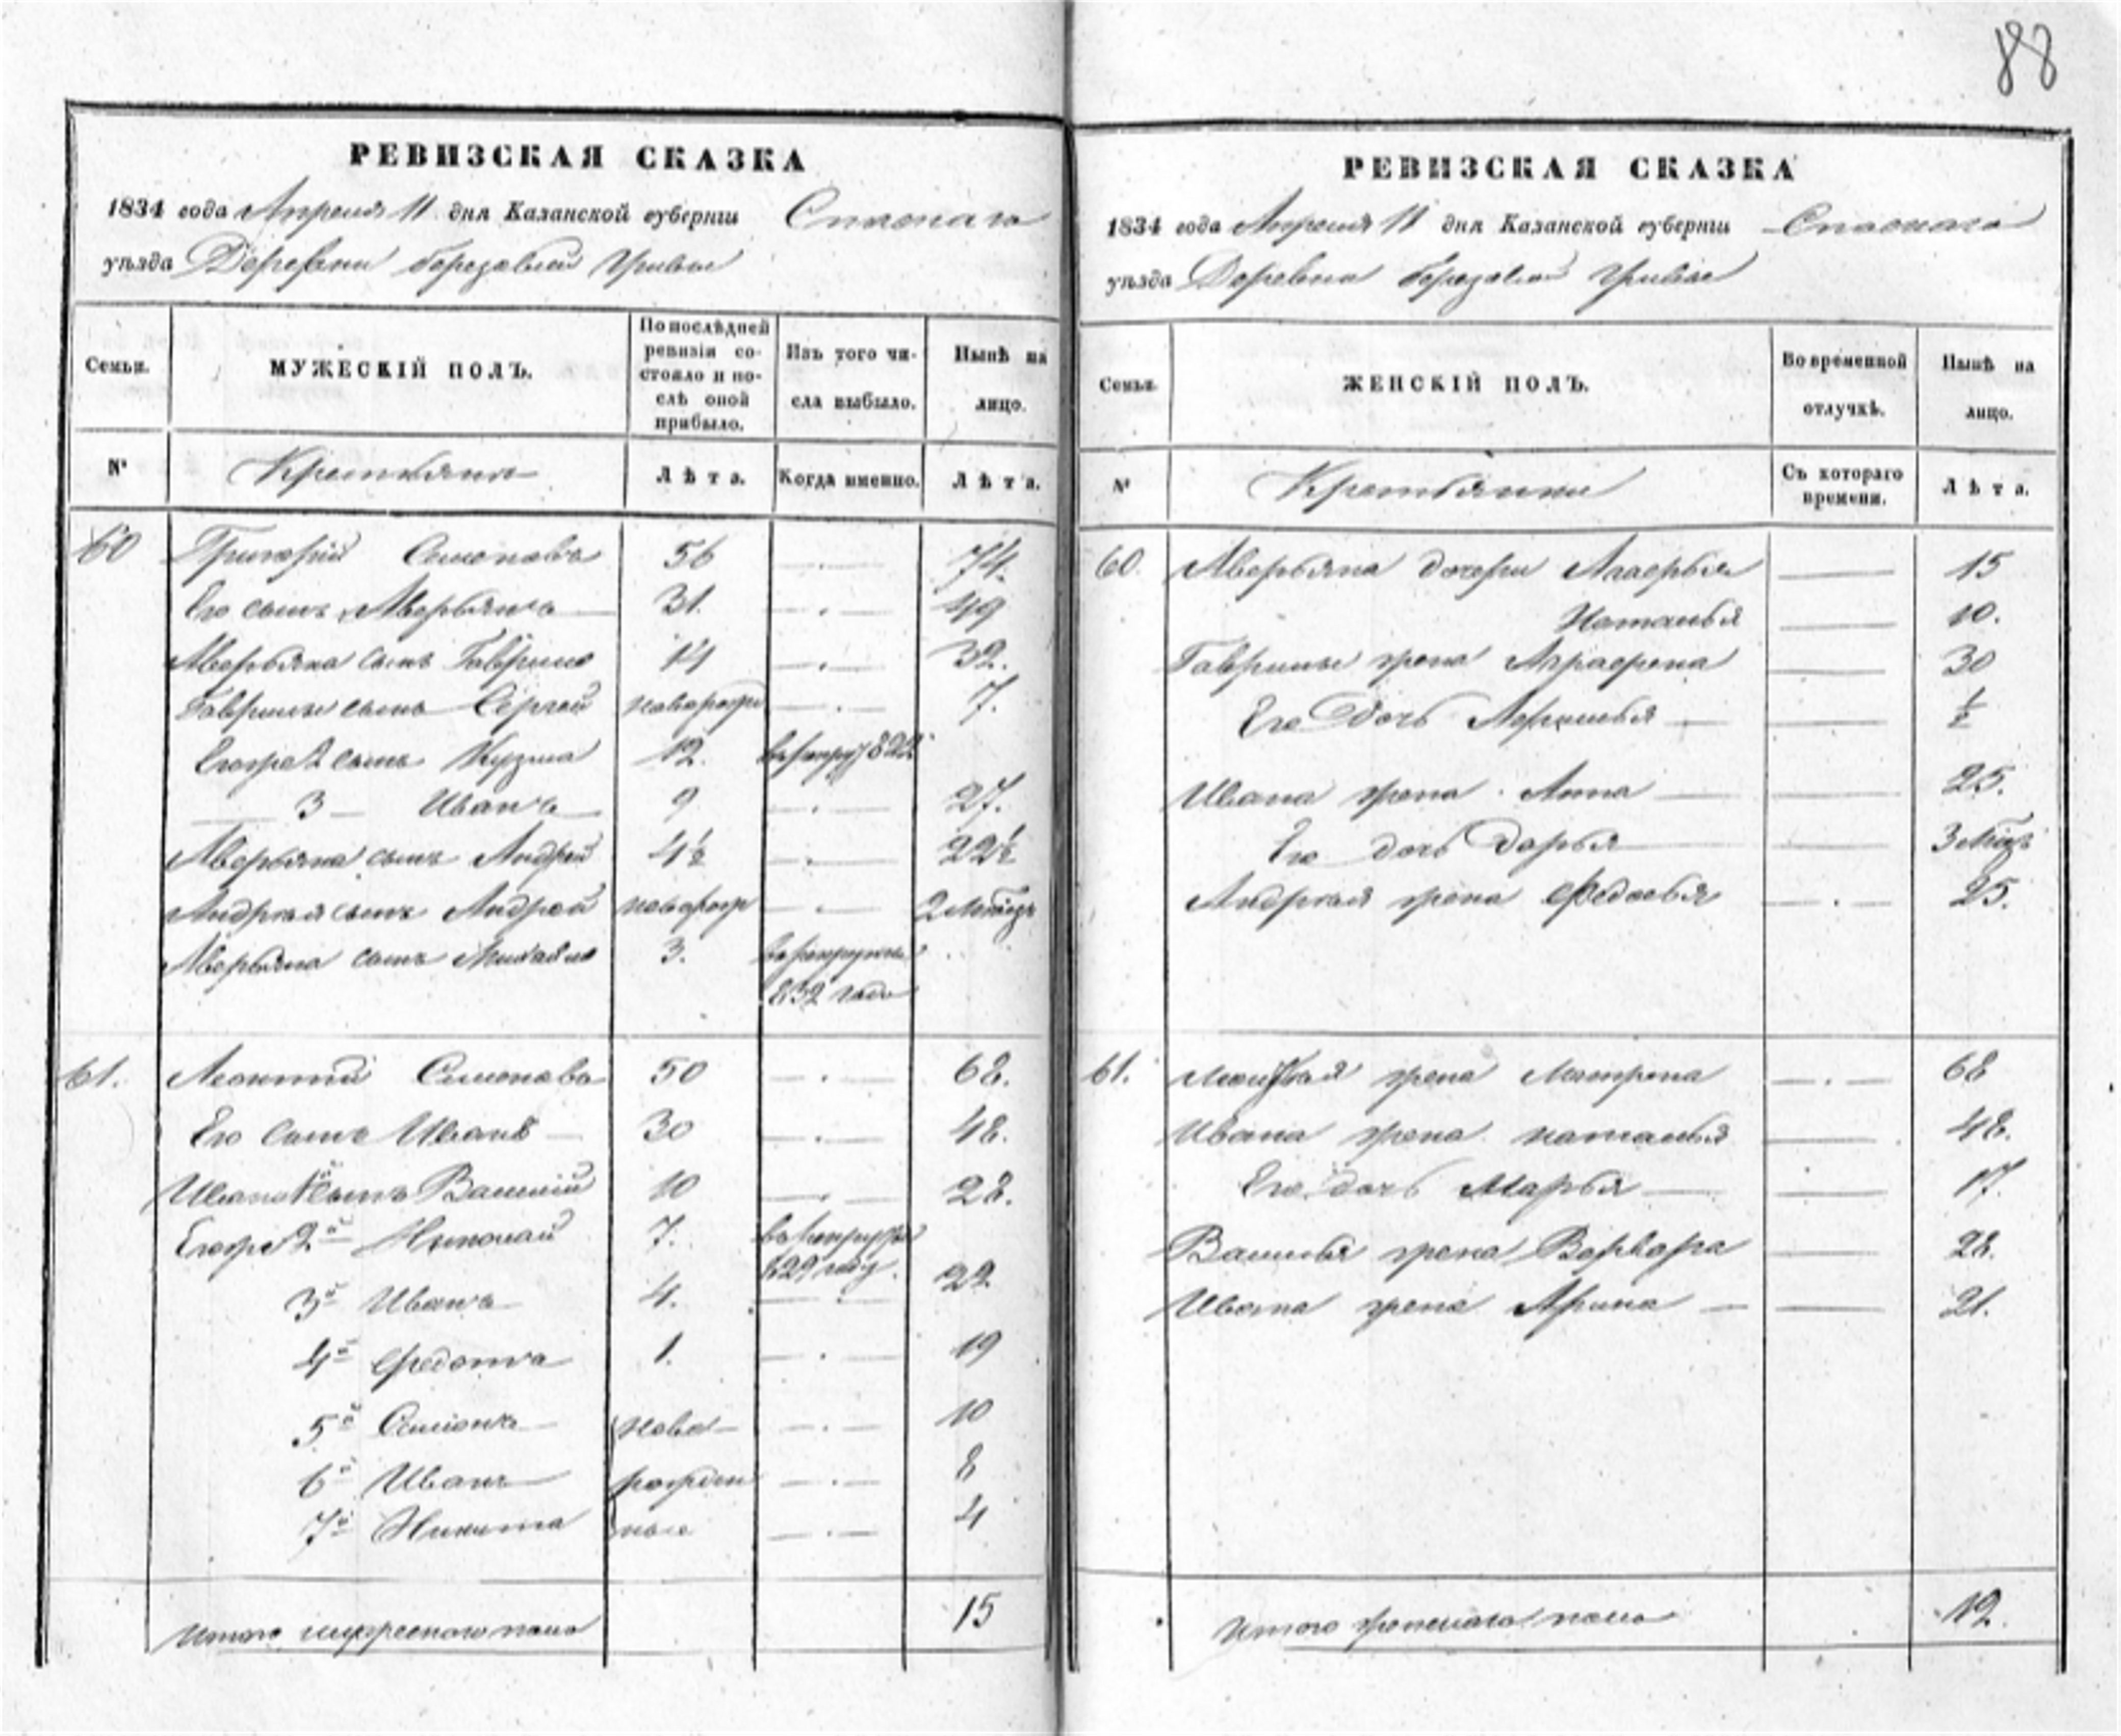 88
РЕВИЗСКАЯ СКАЗКА
1834 года Апреля 11 дня Казанской губерніи Спаскаго
уѣзда Деревни березовой Гривы
Семьи. МУЖЕСКІЙ ПОЛЪ. По послѣдней ревизіи состояло и послѣ оной прибыло. Изъ того числа выбыло. Нынѣ на лицо.
№ Крестьяне Лѣта. Когда именно. Лѣта.
60 Григорій Семеновъ 56 — . — 74.
Его сынъ Аверьянъ 31. — . — 49
Аверьяна сынъ Гаврило 14 — . — 32.
Гаврилы сынъ Сергей новорож — . — 7.
Егоже 2 сынъ Кузма 12.
3 — Иванъ 9 — . — 27.
Аверьяна сынъ Андрей 4½ — . — 22½
Андрея сынъ Андрей новорож — . — 2
Аверьяна сынъ Михайло 3. в рекруты
832 года
61. Леонтий Семеновъ 50 — . — 68.
Его сынъ Иванъ 30 — . — 48.
Ивана 1й сынъ Василій 10 — . — 28.
Егоже 2й Николай 7. в рекруты
829 году.
3й Иванъ 4. — . — 22
4й Федотъ 1. — . — 19
5й Семіонъ ново- — . — 10
6й Иванъ рожден — . — 8
7й Никита ные — . — 4
Итого мужескаго пола 15
РЕВИЗСКАЯ СКАЗКА
1834 года Апреля 11 дня Казанской губерніи Спаскаго
уѣзда Деревни березовой Гривы
Семьи. ЖЕНСКІЙ ПОЛЪ. Во временной отлучкѣ. Нынѣ на лицо.
№ Крестьянки Съ котораго времени. Лѣта.
60. Аверьяна дочери — 15
Наталья — 10.
Гаврилы жена Аграфена — 30
Его дочь — ½
Ивана жена Анна — 25.
Его дочь Дарья — 3
Андрея жена Федосья — . — 25.
61. жена Матрена — . — 68
Ивана жена Наталья — 48.
Его дочь Марья — 17.
Василья жена Варвара — 28.
Ивана жена Арина — 21.
Итого женскаго пола 12.